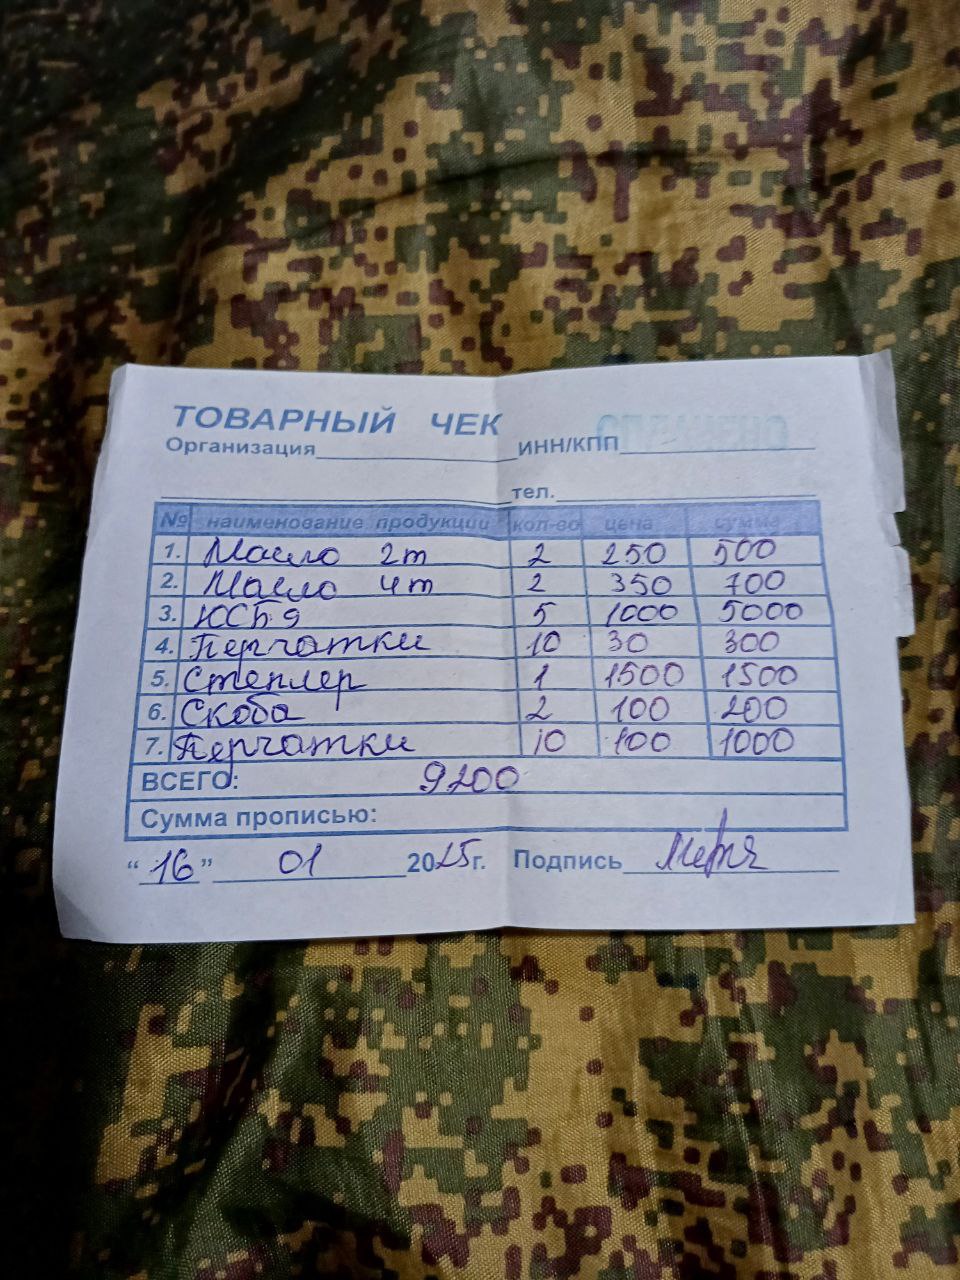 ТОВАРНЫЙ ЧЕК
Организация ИНН/КПП
тел.
№ наименование продукции кол-во цена сумма
1. Масло 2т 2 250 500
2. Масло 4т 2 350 700
3. ЮСБ 9 5 1000 5000
4. Перчатки 10 30 300
5. Степлер 1 1500 1500
6. Скоба 2 100 200
7. Перчатки 10 100 1000
ВСЕГО: 9200
Сумма прописью:
"16" 01 2025г. Подпись